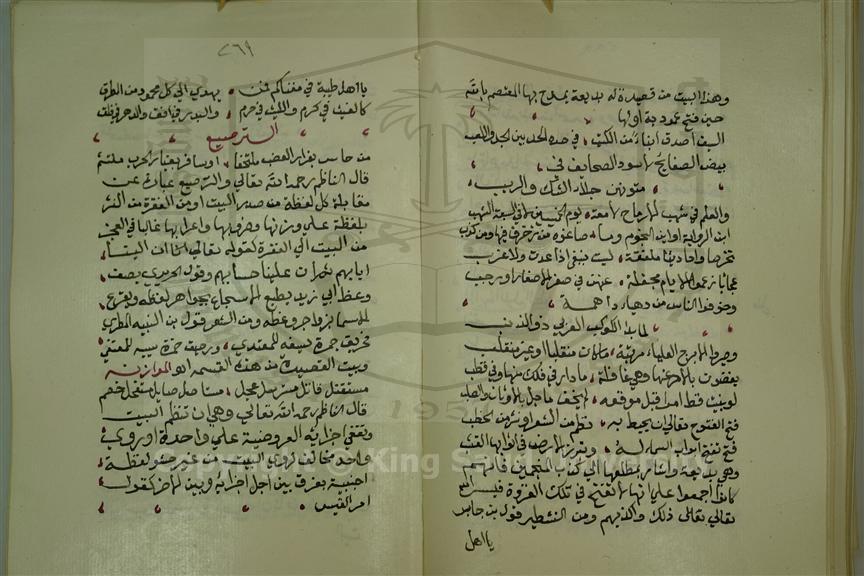 وهذا البيت من قصيدة له بديعة يمدح بها المعتصم بالله
حين فتح عمورية اولها
السيف أصدق انباء من الكتب في حده الحد بين الجد واللعب
بيض الصفائح لا سود الصحايف في
متونهن جلاء الشك والريب
والعلم في شهب الارماح لامعة يوم الخميسين لا في السبعة الشهب
اين الرواية او اين النجوم وما صاغوه من زخرف فيها ومن كذب
تخرصا واحاديثا ملفقة ليست بنبع اذا عدت ولا غرب
عجائبا زعموا الايام مجفلة عنهن في صفر الاصفار او رجب
وخوفوا الناس من دهياء داهمة
لما بدا الكوكب الغربي ذو الذنب
وصيروا الابرج العليا مرتبة ما كان منقلبا او غير منقلب
يقضون بالامر عنها وهي غافلة ما دار في فلك منها وفي قطب
لو بينت قط امرا قبل موقعه لم يخف ما حل بالاوثان والصلب
فتح الفتوح تعالى ان يحيط به نظم من الشعر او نثر من الخطب
فتح تفتح ابواب السماء له وتبرز الارض في اثوابها القشب
وهي بديعة واشار بمطلعها الى كتاب المنجمين فانهم
كانوا أجمعوا على انها لا تفتح في تلك الغزوة فيسر الله
تعالى ذلك واكذبهم ومن التشطير قول بن جابر
يا اهل
٢٦٩
يا اهل طيبة في مغناكم قمر يهدي الى كل محمود من الطرق
كالغيث في كرم والليث في حرم والبدر في افق والدهر في خلق
الترصيع
من حاسر بغرار العضب ملتحفا او سافر بغبار الحرب ملتثم
قال الناظم رحمه الله تعالى والترصيع عبارة عن
مقابلة كل لفظة من صدر البيت او من الفقرة من النثر
بلفظة على وزنها ورويها واعرابها غالبا في العجز
من البيت او الفقرة كقوله تعالى ان الينا
ايابهم ثم ان علينا حسابهم وقول الحريري يصف
وعظ ابي زيد يطبع الاسجاع بجواهر لفظه ويقرع
الاسماع بزواجر وعظه ومن الشعر قول بن النبيه المصري
فحريق جمرة سيفه للمعتدي ورحيق خمرة سيبه للمعتفي
وبيت القصيدة من هذه القسم اه الموازنه
مستقتل قاتل مسترسل عجل مستاصل صايل مستفحل خصم
قال الناظم رحمه الله تعالى وهي ان تنظم البيت
وتقفي اجزايه العروضية على واحدة او روي
واحد مخالف لروي البيت من غير حشو لفظة
اجنبية يفرق بين اجل اجزايه وبين الاخر كقول
امر القيس